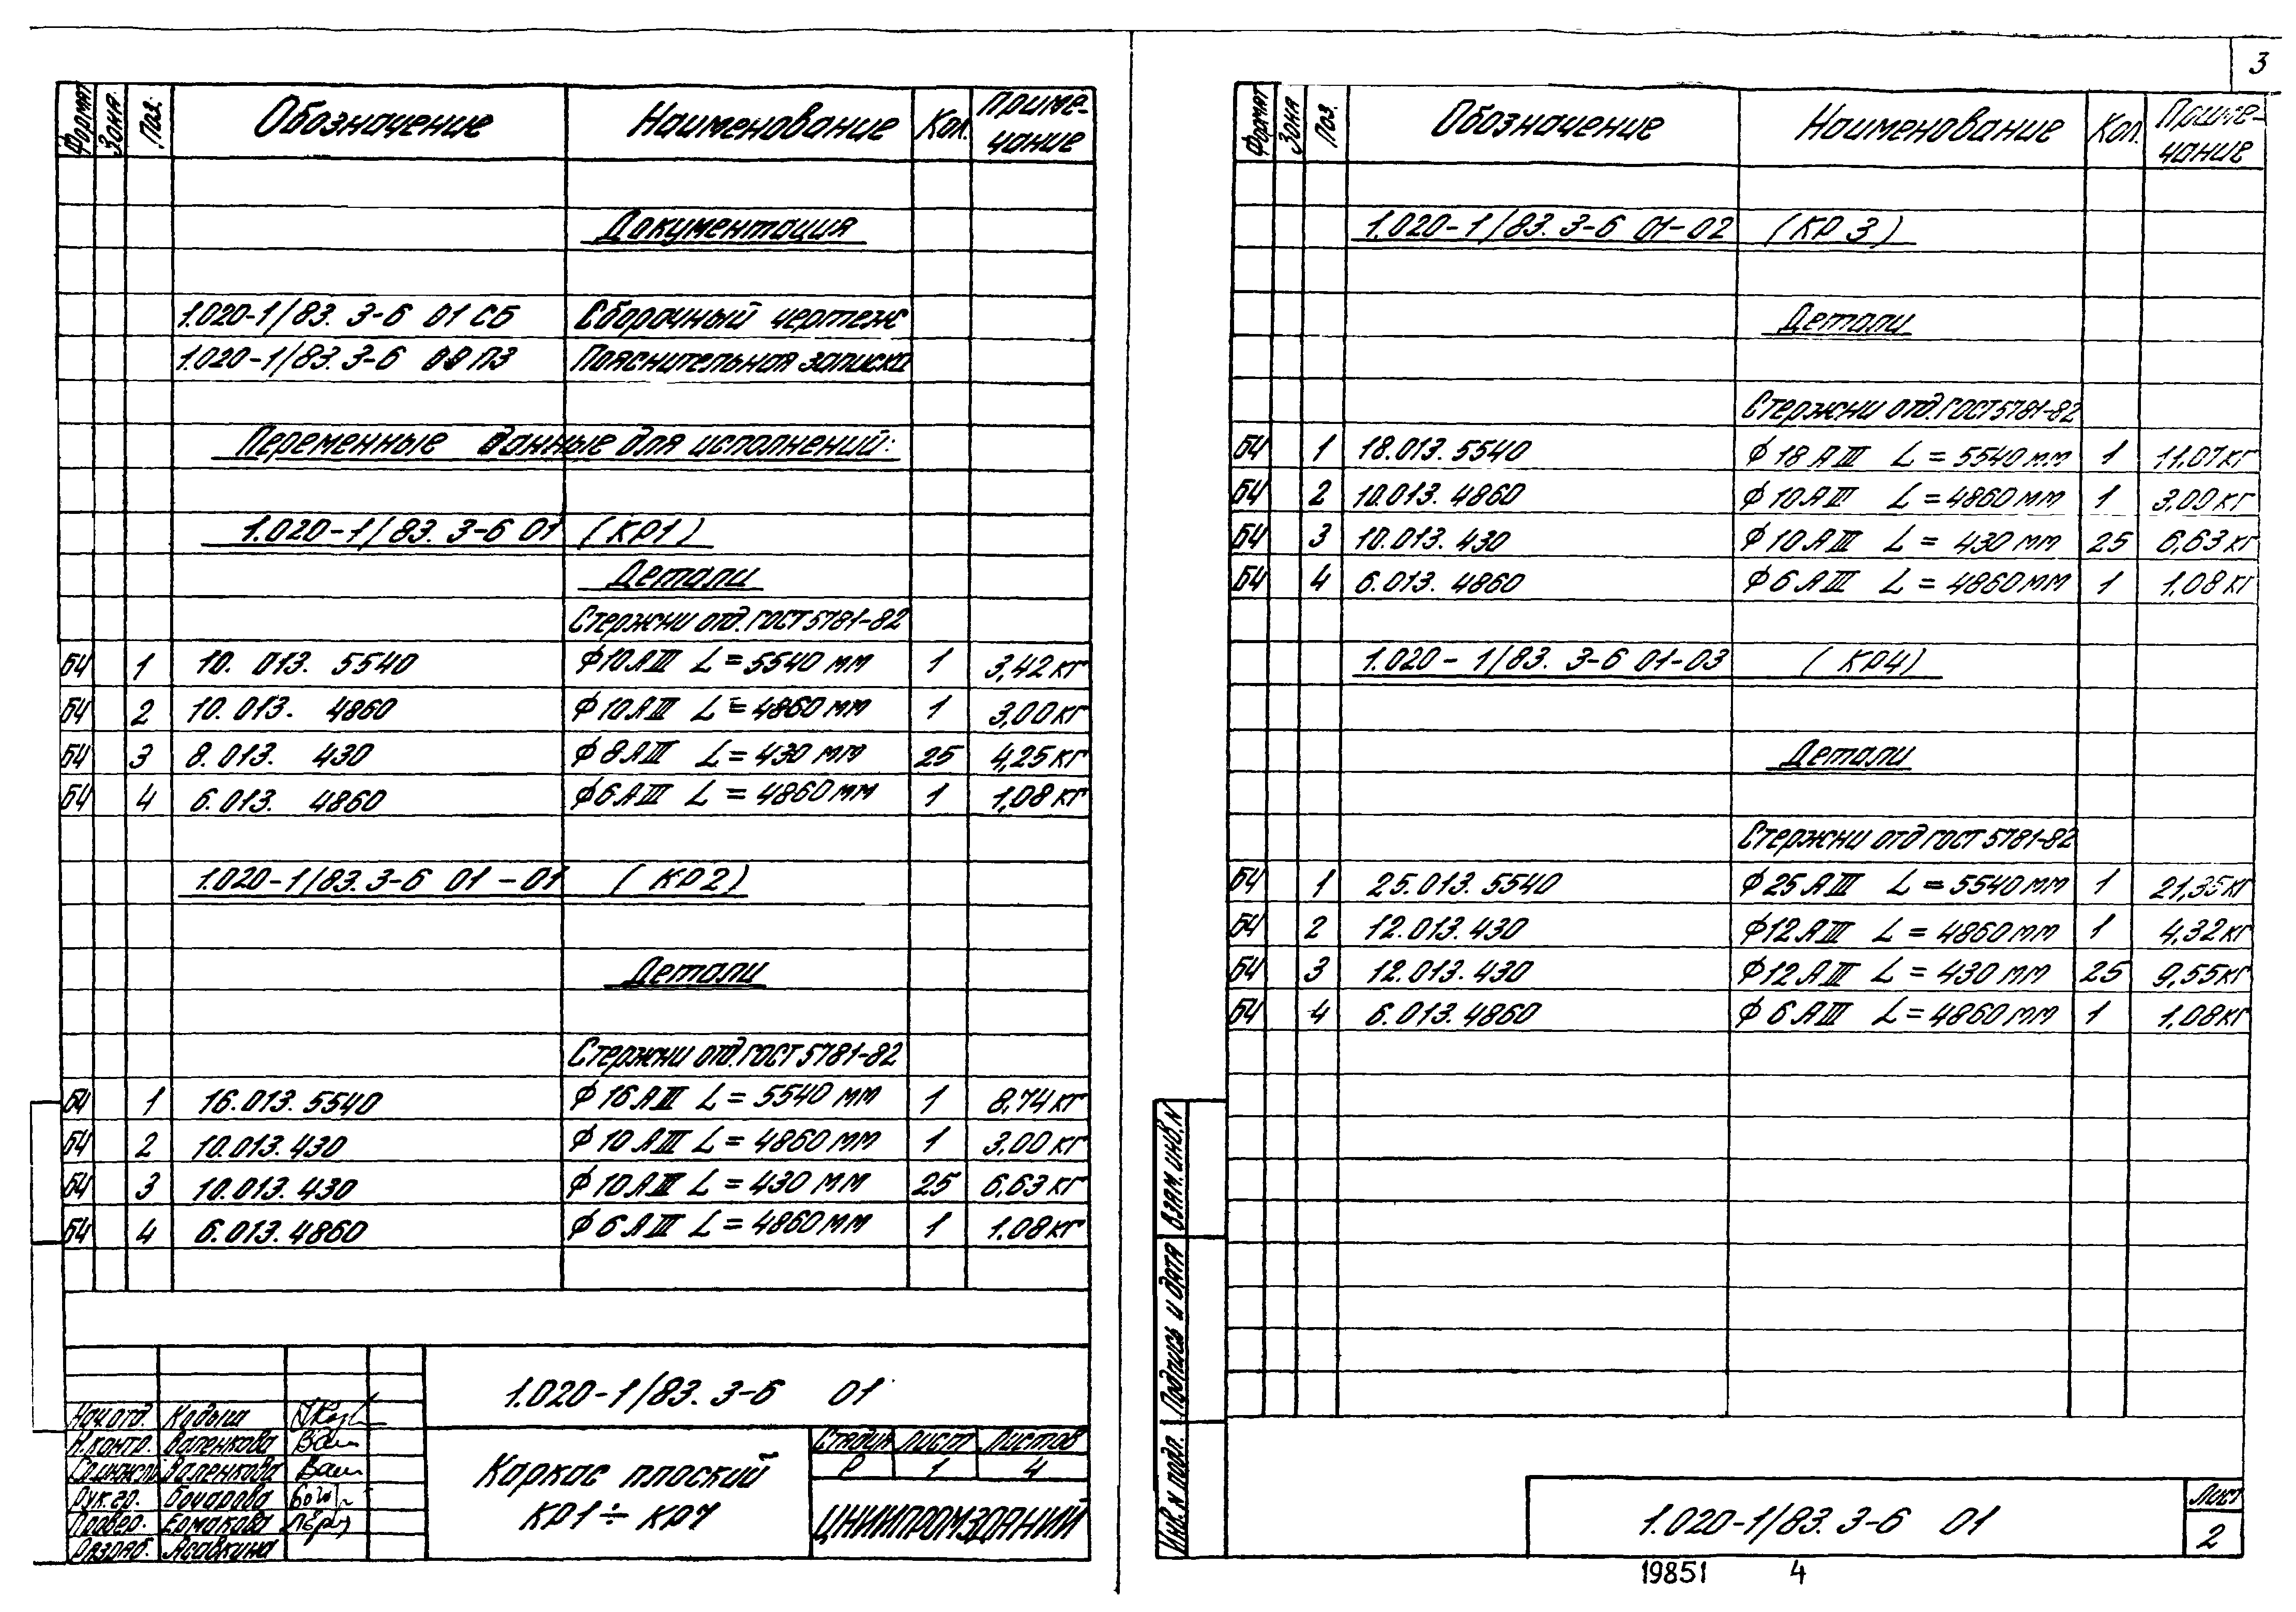 3
Формат Зона Поз. Обозначение Наименование Кол. Приме-
чание
Документация
1.020-1/83. 3-6 01 СБ Сборочный чертеж
1.020-1/83. 3-6 00 ПЗ Пояснительная записка
Переменные данные для исполнений:
1.020-1/83. 3-6 01 (КР1)
Детали
Стержни отд. ГОСТ 5781-82
БЧ 1 10. 013. 5540 ϕ10АIII L = 5540 мм 1 3,42 кг
БЧ 2 10. 013. 4860 ϕ10АIII L = 4860 мм 1 3,00 кг
БЧ 3 8. 013. 430 ϕ8АIII L = 430 мм 25 4,25 кг
БЧ 4 6. 013. 4860 ϕ6АIII L = 4860 мм 1 1,08 кг
1.020-1/83. 3-6 01-01 (КР2)
Детали
Стержни отд. ГОСТ 5781-82
БЧ 1 16.013.5540 ϕ16АIII L = 5540 мм 1 8,74 кг
БЧ 2 10.013.430 ϕ10АIII L = 4860 мм 1 3,00 кг
БЧ 3 10.013.430 ϕ10АIII L = 430 мм 25 6,63 кг
БЧ 4 6.013.4860 ϕ6АIII L = 4860 мм 1 1.08 кг
1.020-1/83. 3-6 01
Нач.отд. Кодыш
Н.контр. Валенкова
Валенкова
Рук.гр. Бочарова
Провер. Ермакова
Разраб. Асавкина
Каркас плоский
КР1÷КР7
Стадия Лист Листов
Р 1 4
ЦНИИПРОМЗДАНИЙ
Формат Зона Поз. Обозначение Наименование Кол. Приме-
чание
1.020-1/83. 3-6 01-02 (КР3)
Детали
Стержни отд. ГОСТ 5781-82
БЧ 1 18.013.5540 ϕ18АIII L = 5540 мм 1 11,07 кг
БЧ 2 10.013.4860 ϕ10АIII L = 4860 мм 1 3,00 кг
БЧ 3 10.013.430 ϕ10АIII L = 430 мм 25 6,63 кг
БЧ 4 6.013.4860 ϕ6АIII L = 4860 мм 1 1,08 кг
1.020-1/83. 3-6 01-03 (КР4)
Детали
Стержни отд ГОСТ 5781-82
БЧ 1 25.013.5540 ϕ25АIII L = 5540 мм 1 21,35 кг
БЧ 2 12.013.430 ϕ12АIII L = 4860 мм 1 4,32 кг
БЧ 3 12.013.430 ϕ12АIII L = 430 мм 25 9,55 кг
БЧ 4 6.013.4860 ϕ6АIII L = 4860 мм 1 1,08 кг
Взам. инв. N
Подпись и дата
Инв. N подл.
1.020-1/83. 3-6 01
Лист
2
19851 4